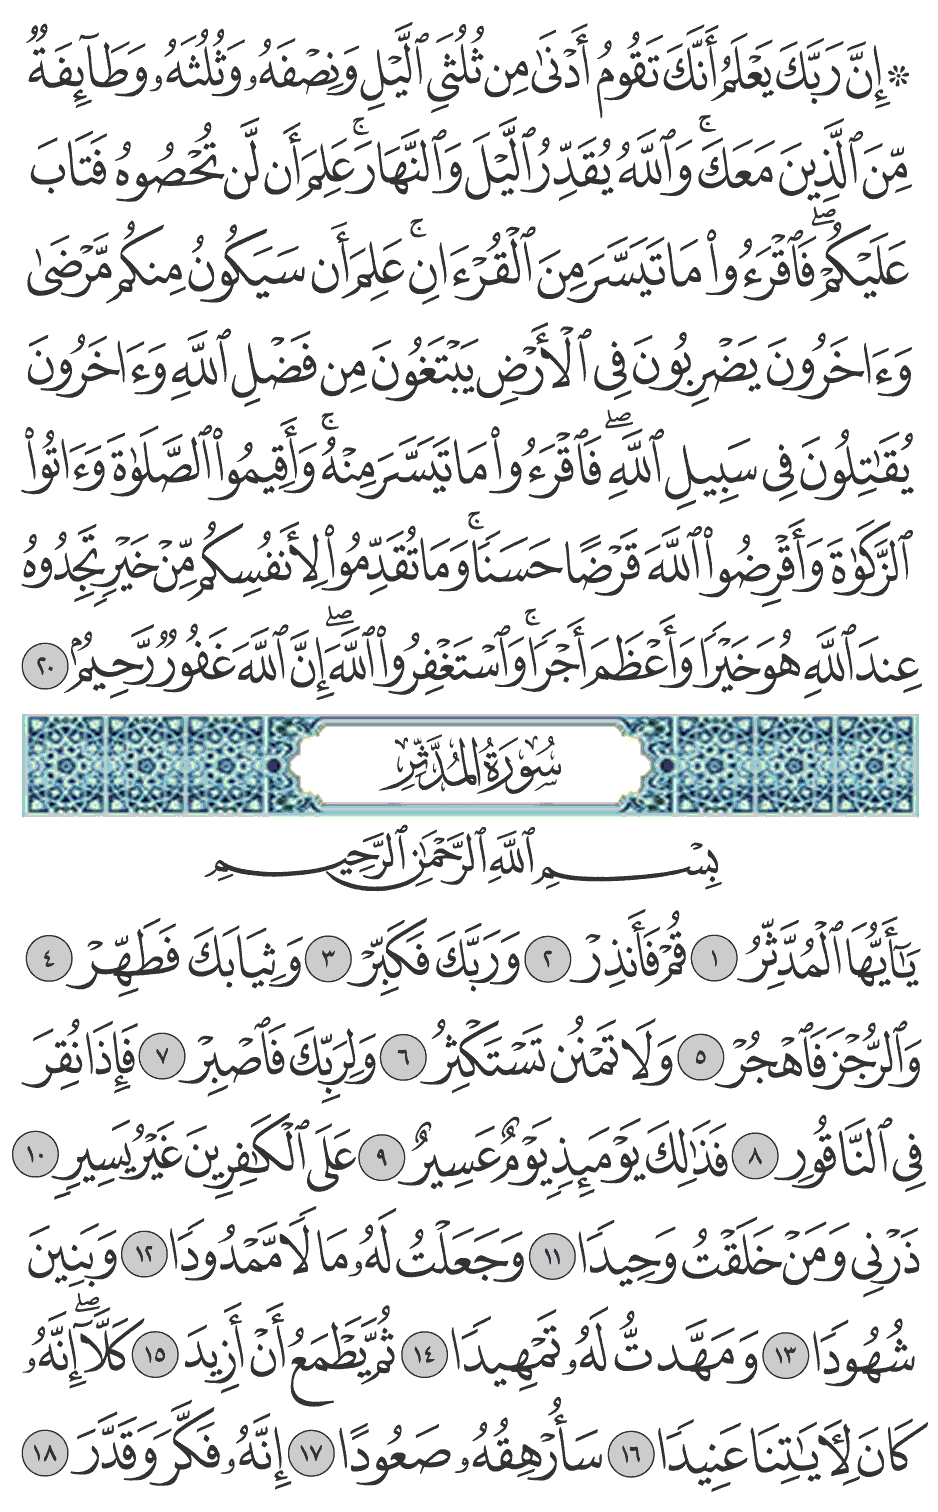 ۞ إِنَّ رَبَّكَ يَعْلَمُ أَنَّكَ تَقُومُ أَدْنَىٰ مِن ثُلُثَيِ ٱلَّيْلِ وَنِصْفَهُۥ وَثُلُثَهُۥ وَطَآئِفَةٌ
مِّنَ ٱلَّذِينَ مَعَكَ ۚ وَٱللَّهُ يُقَدِّرُ ٱلَّيْلَ وَٱلنَّهَارَ ۚ عَلِمَ أَن لَّن تُحْصُوهُ فَتَابَ
عَلَيْكُمْ ۖ فَٱقْرَءُوا۟ مَا تَيَسَّرَ مِنَ ٱلْقُرْءَانِ ۚ عَلِمَ أَن سَيَكُونُ مِنكُم مَّرْضَىٰ
وَءَاخَرُونَ يَضْرِبُونَ فِى ٱلْأَرْضِ يَبْتَغُونَ مِن فَضْلِ ٱللَّهِ وَءَاخَرُونَ
يُقَٰتِلُونَ فِى سَبِيلِ ٱللَّهِ ۖ فَٱقْرَءُوا۟ مَا تَيَسَّرَ مِنْهُ ۚ وَأَقِيمُوا۟ ٱلصَّلَوٰةَ وَءَاتُوا۟
ٱلزَّكَوٰةَ وَأَقْرِضُوا۟ ٱللَّهَ قَرْضًا حَسَنًا ۚ وَمَا تُقَدِّمُوا۟ لِأَنفُسِكُم مِّنْ خَيْرٍ تَجِدُوهُ
عِندَ ٱللَّهِ هُوَ خَيْرًا وَأَعْظَمَ أَجْرًا ۚ وَٱسْتَغْفِرُوا۟ ٱللَّهَ ۖ إِنَّ ٱللَّهَ غَفُورٌ رَّحِيمٌۢ ٢٠
سُورَةُ المُدَّثِّرِ
بِسْمِ ٱللَّهِ ٱلرَّحْمَٰنِ ٱلرَّحِيمِ
يَٰٓأَيُّهَا ٱلْمُدَّثِّرُ ١ قُمْ فَأَنذِرْ ٢ وَرَبَّكَ فَكَبِّرْ ٣ وَثِيَابَكَ فَطَهِّرْ ٤
وَٱلرُّجْزَ فَٱهْجُرْ ٥ وَلَا تَمْنُن تَسْتَكْثِرُ ٦ وَلِرَبِّكَ فَٱصْبِرْ ٧ فَإِذَا نُقِرَ
فِى ٱلنَّاقُورِ ٨ فَذَٰلِكَ يَوْمَئِذٍ يَوْمٌ عَسِيرٌ ٩ عَلَى ٱلْكَٰفِرِينَ غَيْرُ يَسِيرٍ ١٠
ذَرْنِى وَمَنْ خَلَقْتُ وَحِيدًا ١١ وَجَعَلْتُ لَهُۥ مَالًا مَّمْدُودًا ١٢ وَبَنِينَ
شُهُودًا ١٣ وَمَهَّدتُّ لَهُۥ تَمْهِيدًا ١٤ ثُمَّ يَطْمَعُ أَنْ أَزِيدَ ١٥ كَلَّآ ۖ إِنَّهُۥ
كَانَ لِءَايَٰتِنَا عَنِيدًا ١٦ سَأُرْهِقُهُۥ صَعُودًا ١٧ إِنَّهُۥ فَكَّرَ وَقَدَّرَ ١٨